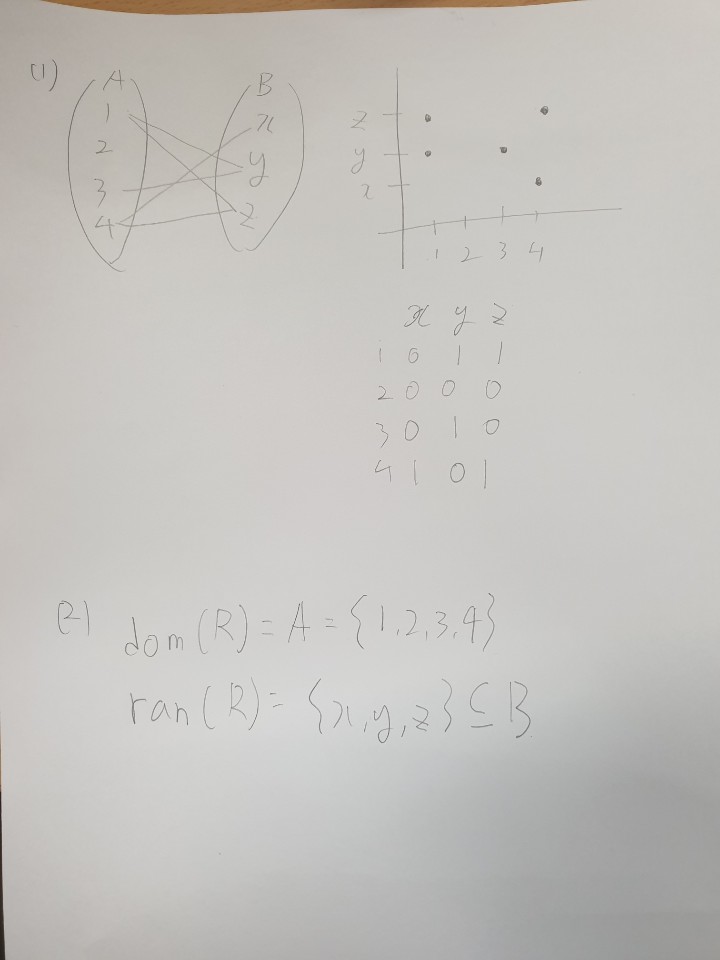 (1)
A
1
2
3
4
B
x
y
z
z
y
x
1 2 3 4
x y z
1 0 1 1
2 0 0 0
3 0 1 0
4 1 0 1
(2)
dom(R) = A = {1,2,3,4}
ran(R) = {x,y,z} ⊆ B